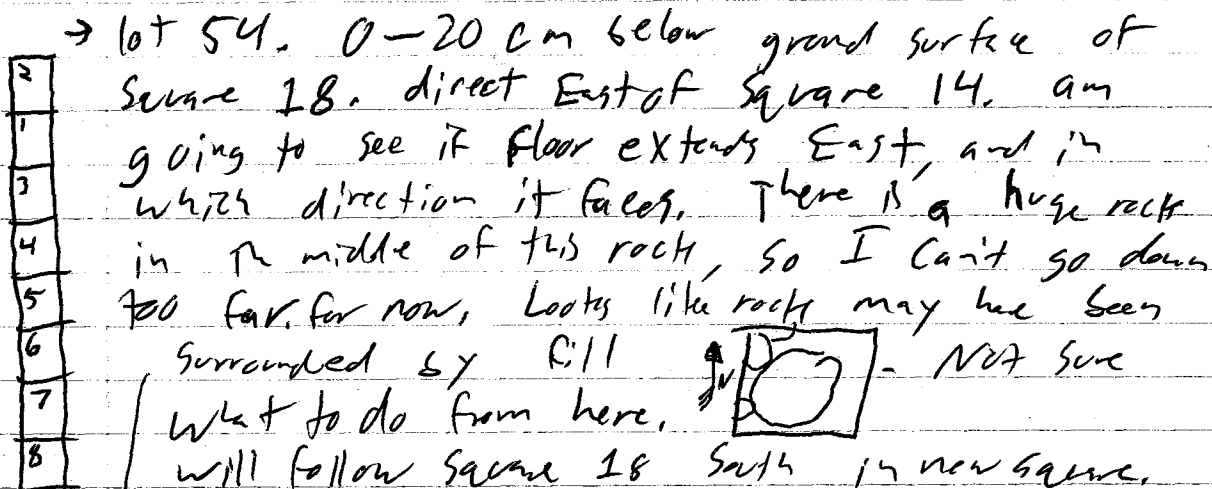 → lot 54. 0-20 cm below ground surface of
2
Square 18. direct East of Square 14. am
1
going to see if floor extends East, and in
3
which direction it faces. There is a huge rock
4
in the middle of this rock, so I can't go down
5
too far. for now, Looks like rock may have been
6
surrounded by fill N - Not sure
7
what to do from here.
8
will follow Square 18 South in new square.